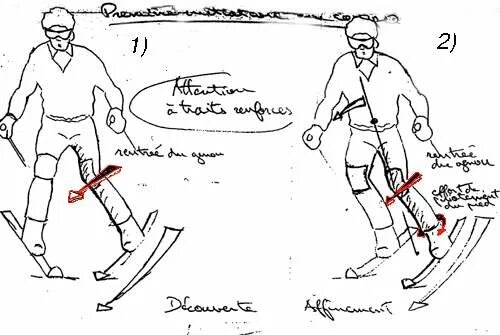 1)
2)
Attention
à traits renforcés
rentrée du genou
rentrée
du genou
effort de
pivotement
du pied
Découverte
Affinement